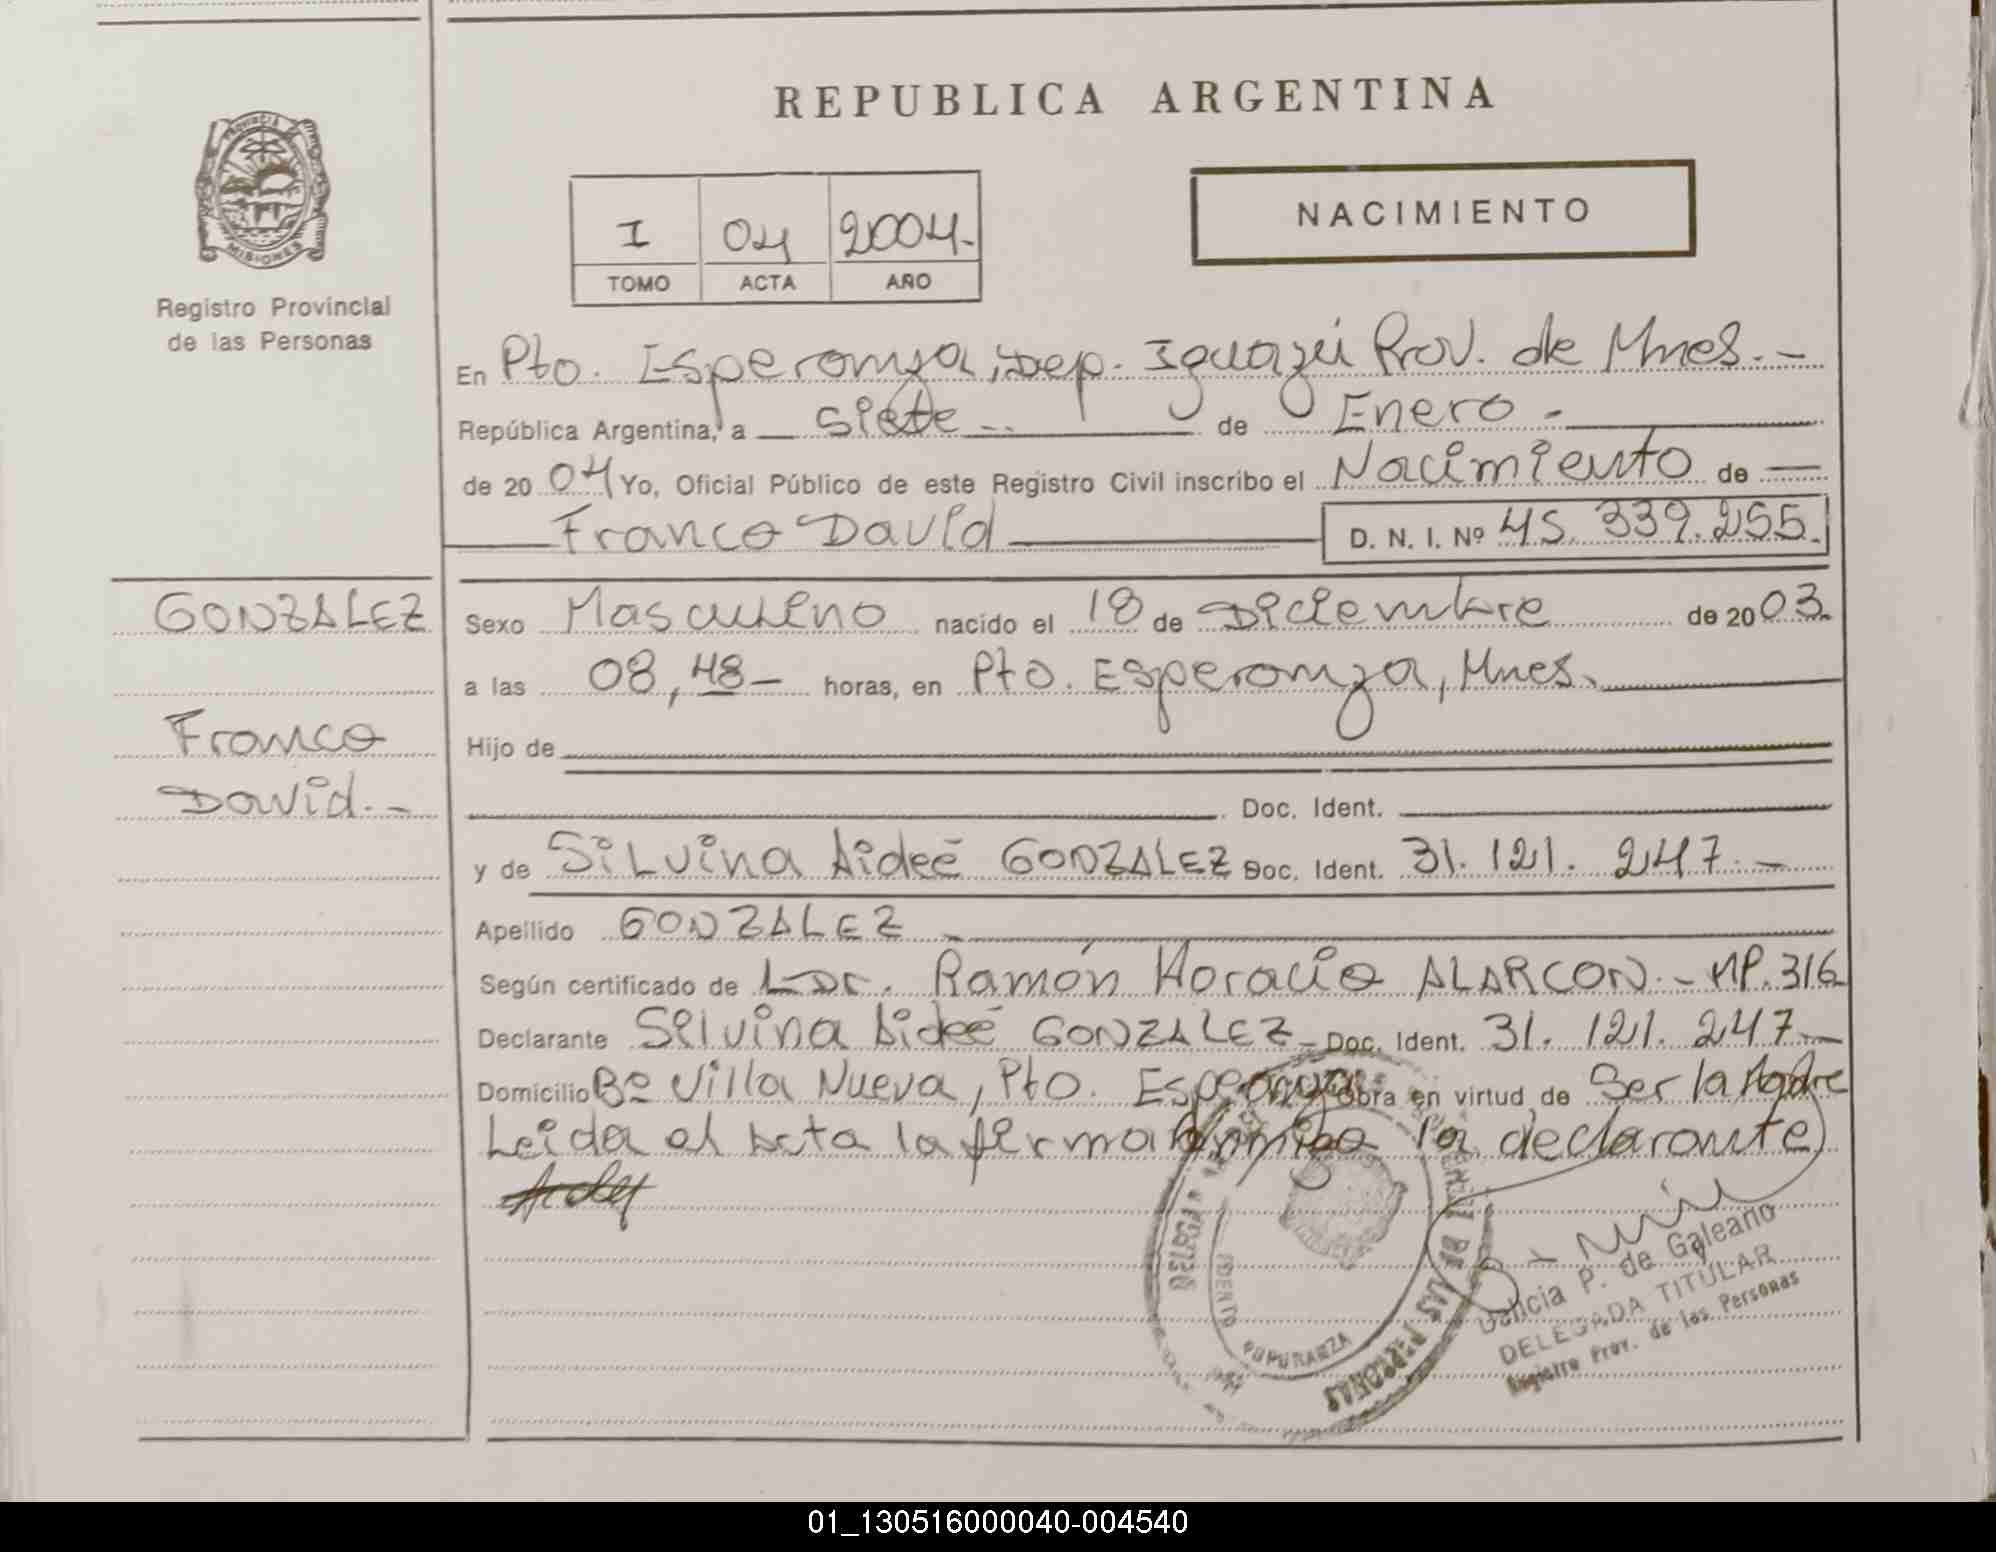 REPUBLICA ARGENTINA
PROVINCIA
MISIONES
Registro Provincial
de las Personas
I 04 2004.-
TOMO ACTA AÑO
NACIMIENTO
En Pto. Esperanza, Dep. Iguazú Prov. de Mnes. -
República Argentina, a siete - de Enero -
de 2004 Yo, Oficial Público de este Registro Civil inscribo el Nacimiento de
Franco David
D. N. I. Nº 45.339.255.
GONZALEZ
Franco
David.-
Sexo Masculino nacido el 18 de Diciembre de 2003.
a las 08,48- horas, en Pto. Esperanza, Mnes.
Hijo de
Doc. Ident.
y de Silvina Aideé GONZALEZ Doc. Ident. 31.121.247.-
Apellido GONZALEZ -
Según certificado de Dr. Ramón Horacio ALARCON.- MP.316
Declarante Silvina Aideé GONZALEZ - Doc. Ident. 31.121.247.-
Domicilio Bº Villa Nueva, Pto. Esperanza Obra en virtud de Ser la Madre
Leida el Acta la firma conmigo la declarante
REGISTRO DE LAS PERSONAS
Delicia P. de Galeano
DELEGADA TITULAR
Registro Prov. de las Personas
01_130516000040-004540